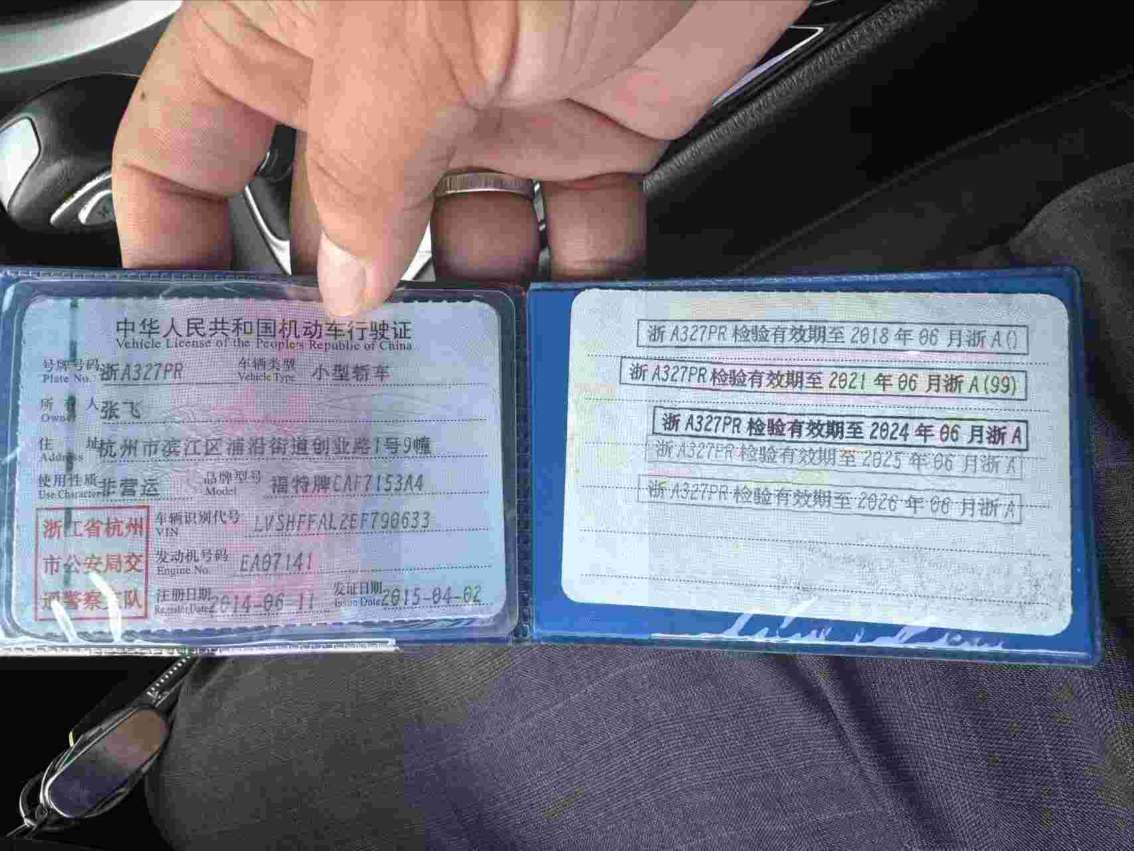 中华人民共和国机动车行驶证
Vehicle License of the People's Republic of China
号牌号码 浙A327PR 车辆类型 小型轿车
Plate No. Vehicle Type
所有人 张飞
Owner
住址 杭州市滨江区浦沿街道创业路1号9幢
Address
使用性质 非营运 品牌型号 福特牌CAF7153A4
Use Character Model
浙江省杭州
市公安局交
通警察支队
车辆识别代号 LVSHFFALZEF790633
VIN
发动机号码 EA07141
Engine No.
注册日期 2014-06-11 发证日期 2015-04-02
Register Date Issue Date
浙A327PR检验有效期至2018年06月浙A()
浙A327PR检验有效期至2021年06月浙A(99)
浙A327PR检验有效期至2024年06月浙A
浙A327PR检验有效期至2025年06月浙A
浙A327PR检验有效期至2026年06月浙A